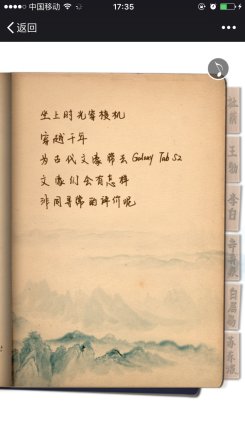 中国移动
17:35
返回
坐上时光穿梭机
穿越千年
为古代文豪带去Galaxy Tab S2
文豪们会有怎样
非同寻常的评价呢
杜甫
王勃
李白
辛弃疾
白居易
苏东坡